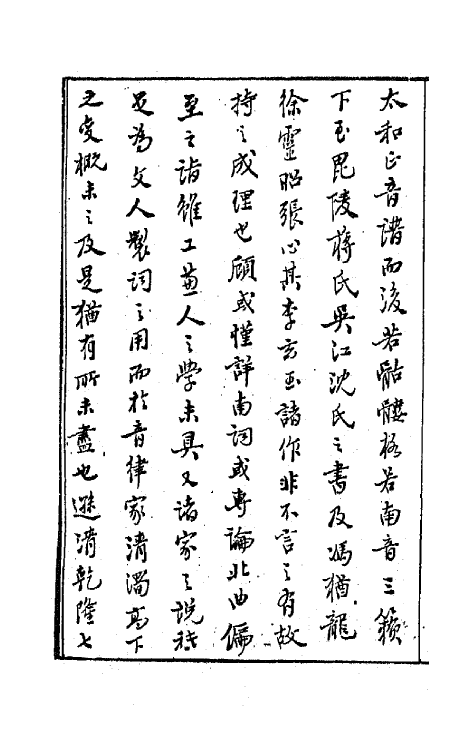 太和正音譜而後若骷髏格若南音三籟
下至毘陵蔣氏吳江沈氏之書及馮猶龍
徐靈昭張心其李玄玉諸作非不言之有故
持之成理也顧或僅詳南詞或專論北曲偏
至之詣雖工兼人之學未具又諸家之說秪
足為文人製詞之用而於音律家清濁高下
之變概未之及是猶有所未盡也遜清乾隆七